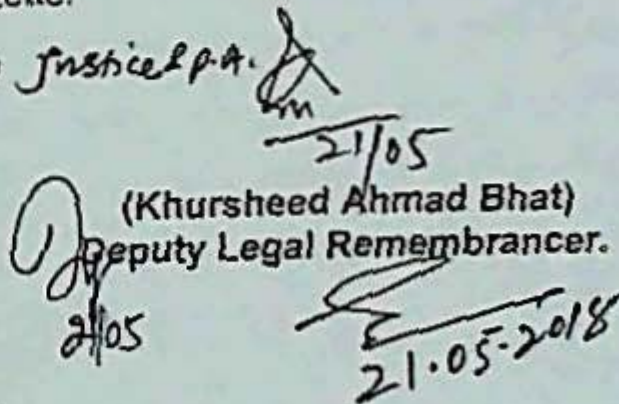 Justice & P.A.
21/05
(Khursheed Ahmad Bhat)
Deputy Legal Remembrancer.
21/05
21.05.2018